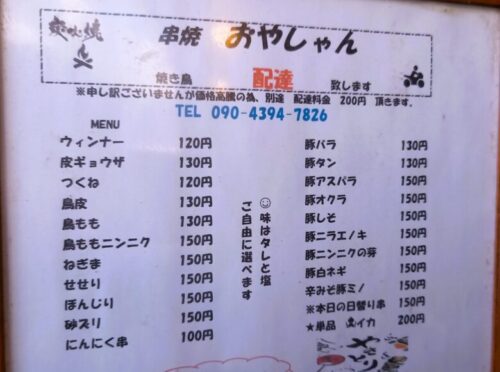 炭火焼
串焼 おやしゃん
焼き鳥 配達 致します
※申し訳ございませんが価格高騰の為、別途 配達料金 200円 頂きます。
TEL 090-4394-7826
MENU
ウィンナー 120円
皮ギョウザ 130円
つくね 120円
鳥皮 130円
鳥もも 130円
鳥ももニンニク 150円
ねぎま 150円
せせり 150円
ぼんじり 150円
砂ズリ 150円
にんにく串 100円
味はタレと塩
ご自由に選べます
豚バラ 130円
豚タン 130円
豚アスパラ 150円
豚オクラ 150円
豚しそ 150円
豚ニラエノキ 150円
豚ニンニクの芽 150円
豚白ネギ 150円
辛みそ豚ミノ 150円
※本日の日替り串 150円
★単品 イカ 200円